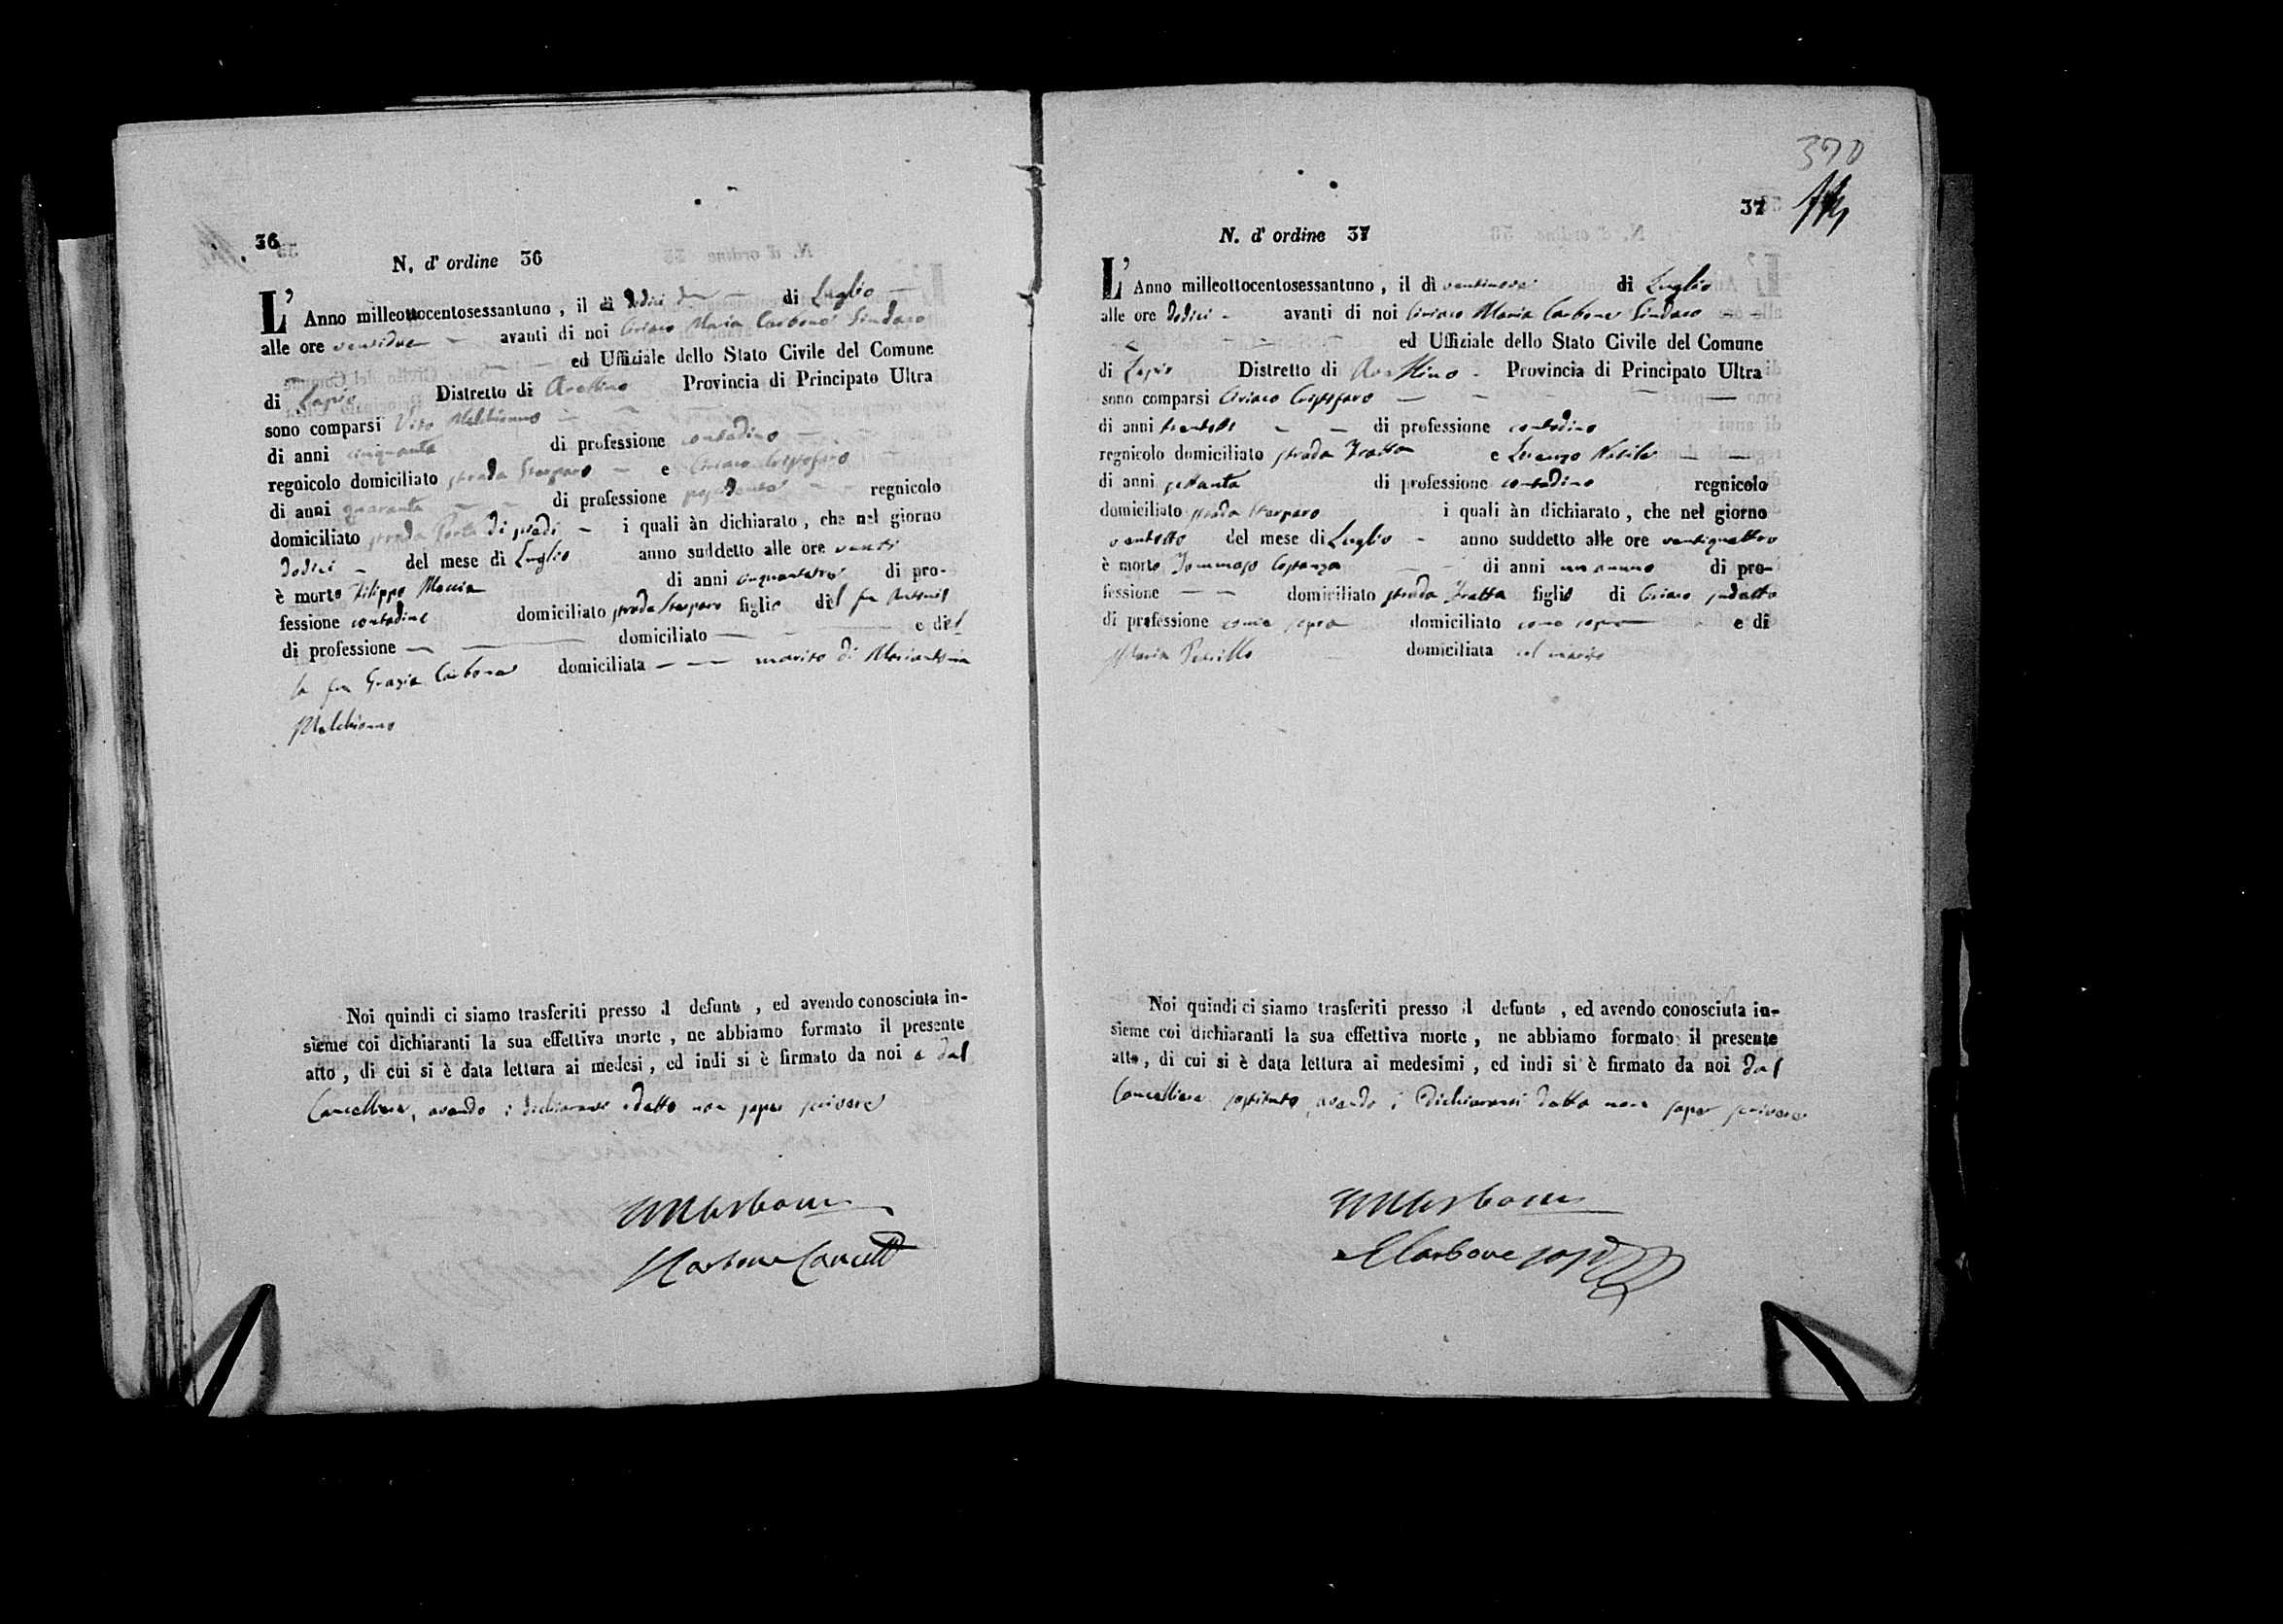 36
N. d' ordine 36
L' Anno milleottocentosessantuno, il dì dodici di Luglio
alle ore ventidue avanti di noi Ciriaco Maria Carbone Sindaco
ed Uffiziale dello Stato Civile del Comune
di Lapio Distretto di Avellino Provincia di Principato Ultra
sono comparsi Vito Melchionno
di anni cinquanta di professione contadino
regnicolo domiciliato strada e Ciriaco
di anni quaranta di professione regnicolo
domiciliato strada Porta di i quali àn dichiarato, che nel giorno
dodici del mese di Luglio anno suddetto alle ore venti
è morto Filippo di anni di pro-
fessione contadino domiciliato strada figlio del fu Antonio
di professione domiciliato e del
la fu Grazia Carbone domiciliata marito di Mariantonia
Melchionno
Noi quindi ci siamo trasferiti presso il defunto, ed avendo conosciuta in-
sieme coi dichiaranti la sua effettiva morte, ne abbiamo formato il presente
atto, di cui si è data lettura ai medesi, ed indi si è firmato da noi e dal
Cancelliere, avendo i dichiaranti detto non saper scrivere
CMCarbone
Carbone Cancell
370
37
N. d' ordine 37
L' Anno milleottocentosessantuno, il dì ventinove di Luglio
alle ore dodici avanti di noi Ciriaco Maria Carbone Sindaco
ed Uffiziale dello Stato Civile del Comune
di Lapio Distretto di Avellino Provincia di Principato Ultra
sono comparsi Ciriaco
di anni di professione contadino
regnicolo domiciliato strada Fratta e Lorenzo Nobile
di anni settanta di professione contadino regnicolo
domiciliato strada i quali àn dichiarato, che nel giorno
ventotto del mese di Luglio anno suddetto alle ore ventiquattro
è morto Tommaso di anni un anno di pro-
fessione domiciliato strada Fratta figlio di Ciriaco sudetto
di professione come sopra domiciliato come sopra e di
Maria domiciliata col marito
Noi quindi ci siamo trasferiti presso il defunto, ed avendo conosciuta in-
sieme coi dichiaranti la sua effettiva morte, ne abbiamo formato il presente
atto, di cui si è data lettura ai medesimi, ed indi si è firmato da noi dal
Cancelliere sostituto, avendo i dichiaranti detto non saper scrivere
CMCarbone
Carbone